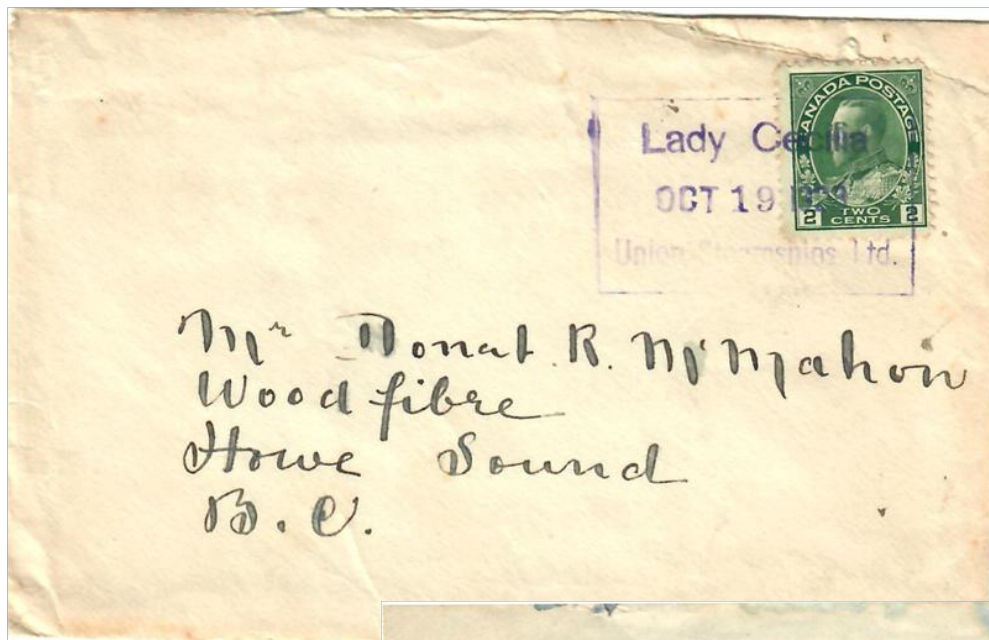 CANADA POSTAGE
2 TWO CENTS 2
Lady Cecilia
OCT 19
Union Steamships Ltd.
Mr Donat R. McMahon
Woodfibre
Howe Sound
B. C.